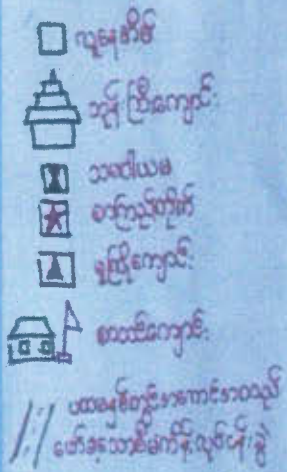 လူနေအိမ်
ဘုန်းကြီးကျောင်း
သမဝါယမ
စာကြည့်တိုက်
မူကြိုကျောင်း
စာသင်ကျောင်း
ပထမနှစ်တွင်အကောင်အထည်
ဖော်ခဲ့သောစီမံကိန်းလုပ်ငန်းခွဲ